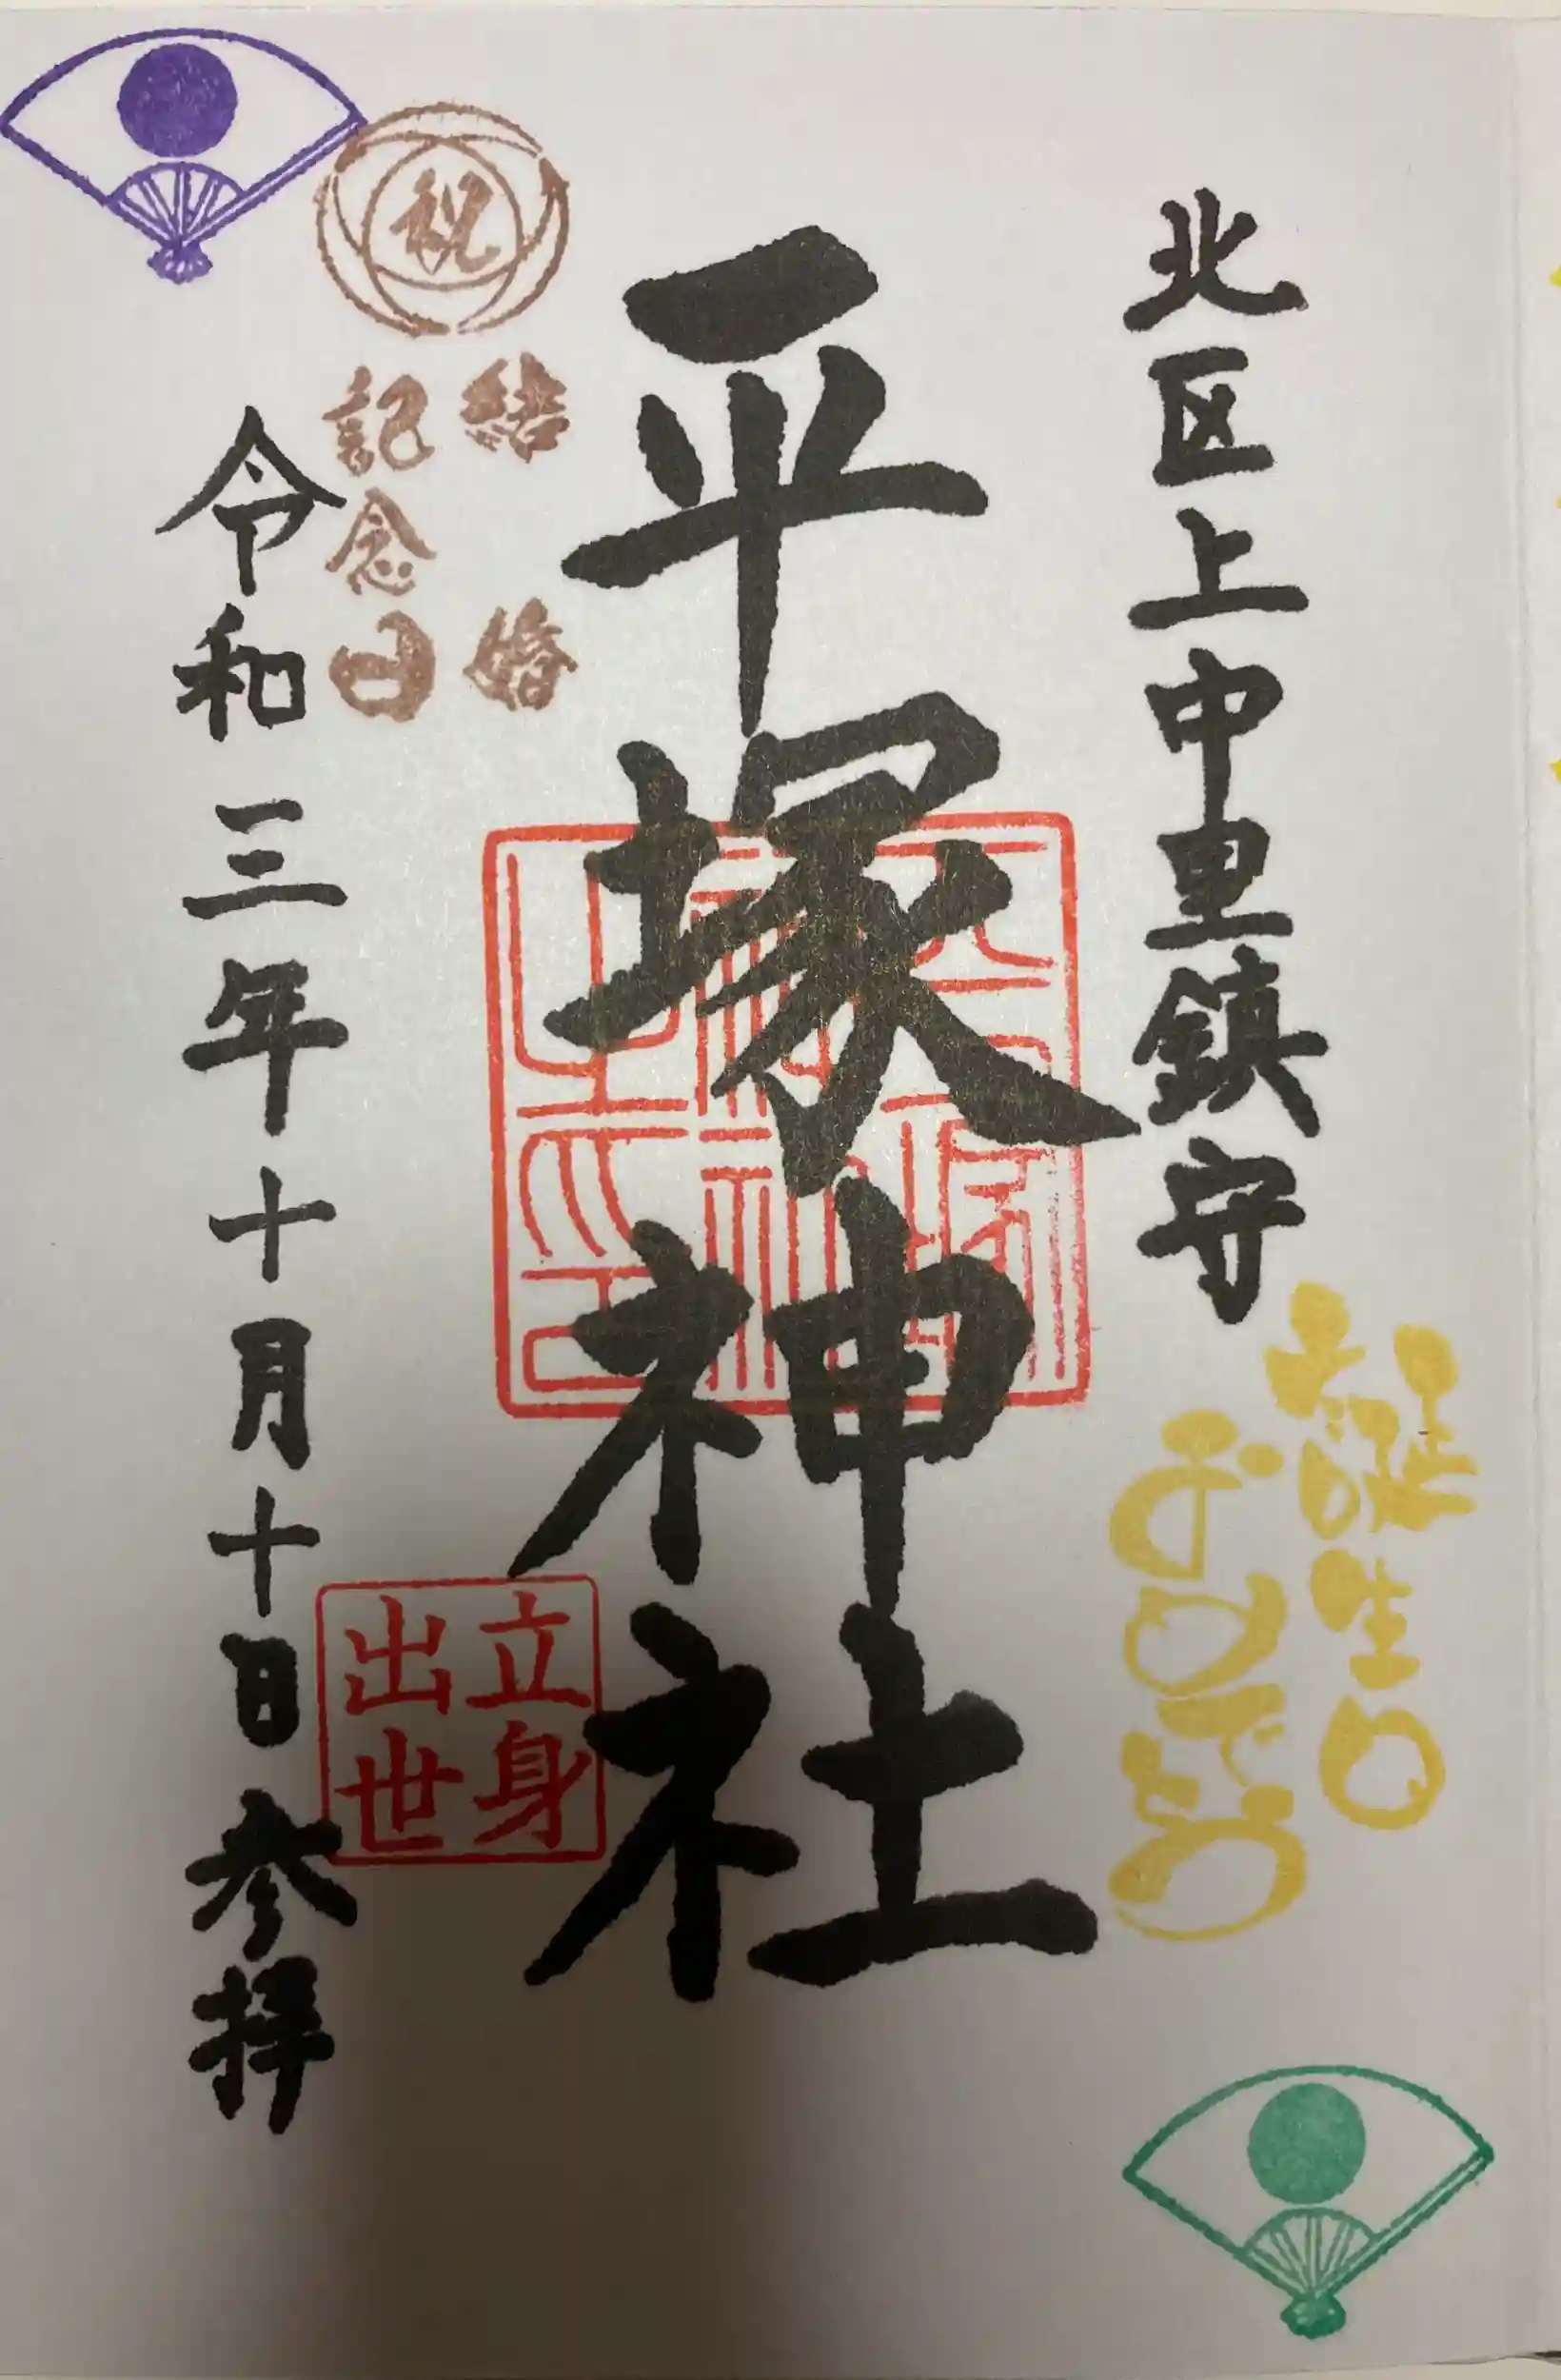 北区上中里鎮守
誕生日
おめでとう
平塚神社
平塚神社之印
立身
出世
祝
結婚
記念日
令和三年十月十日参拝